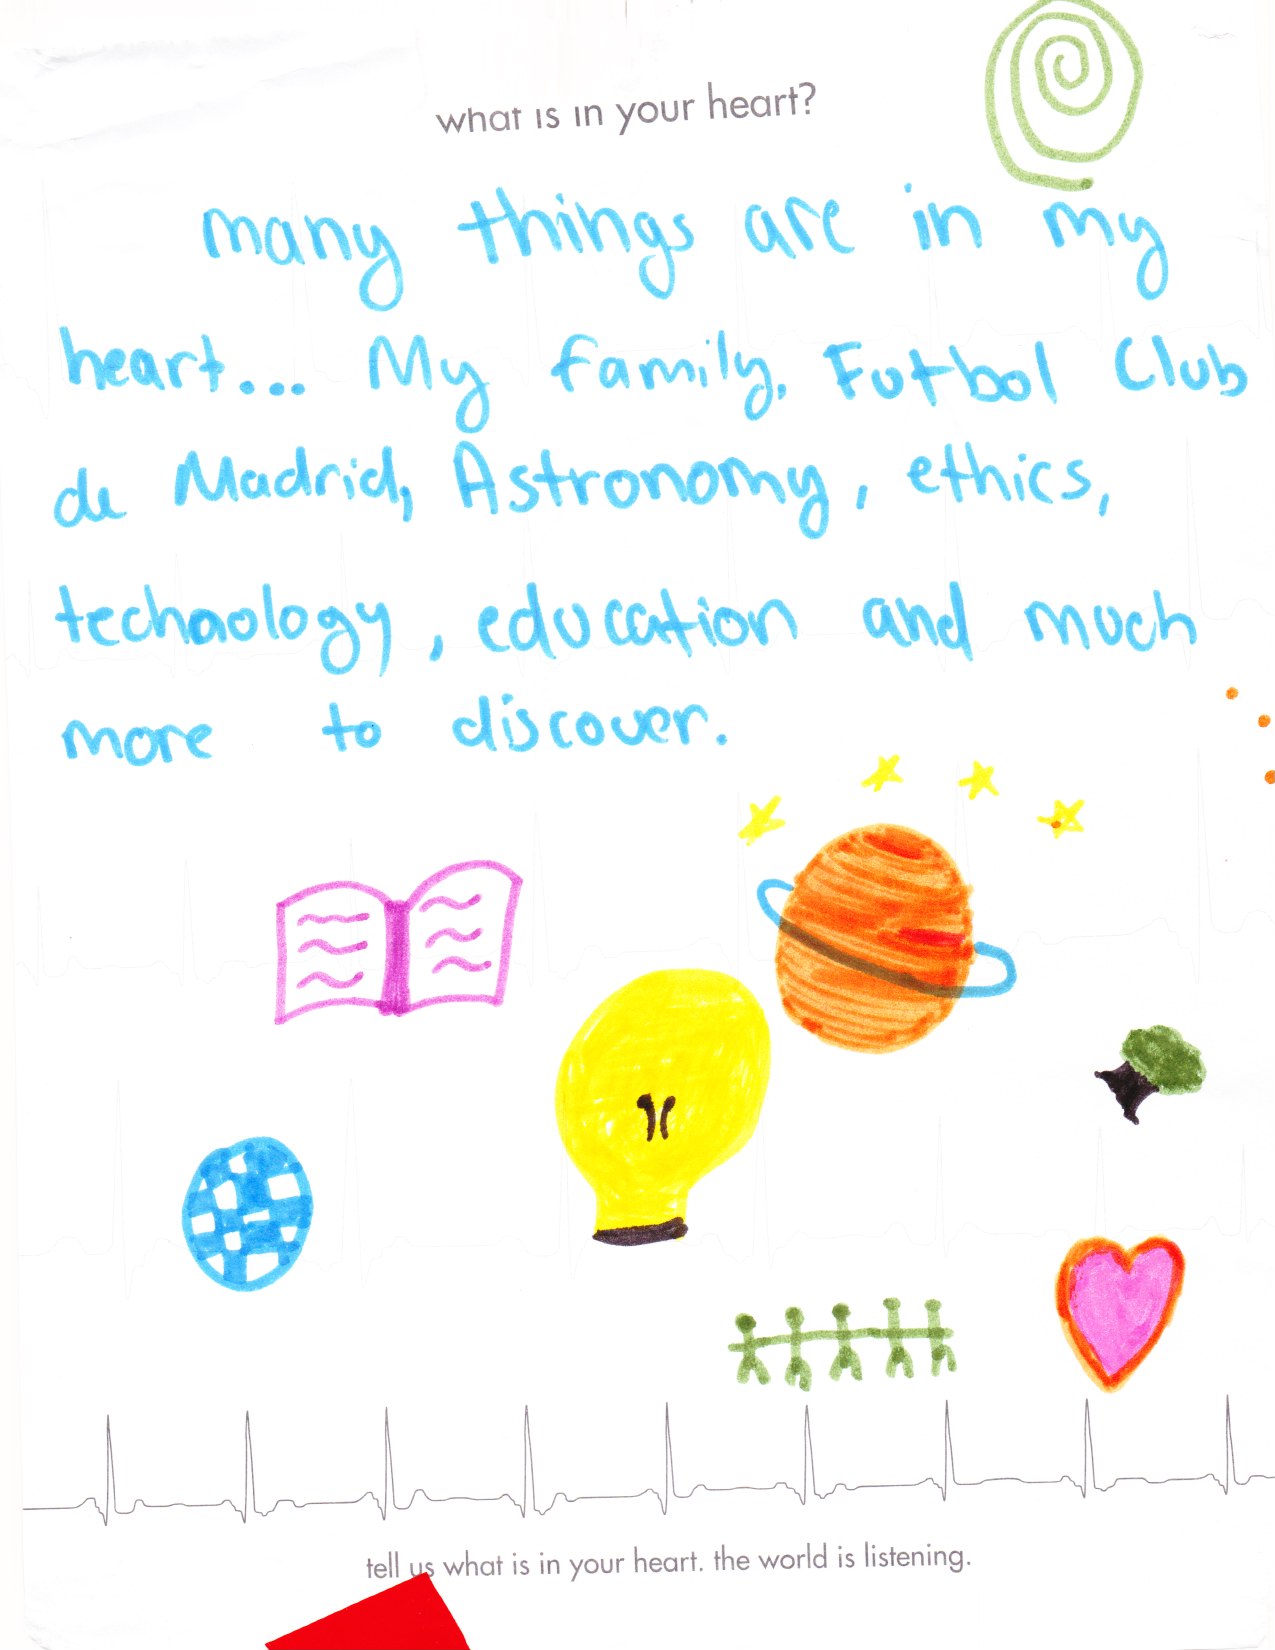 what is in your heart?
many things are in my
heart... My family, Futbol Club
de Madrid, Astronomy, ethics,
technology, education and much
more to discover.
tell us what is in your heart. the world is listening.